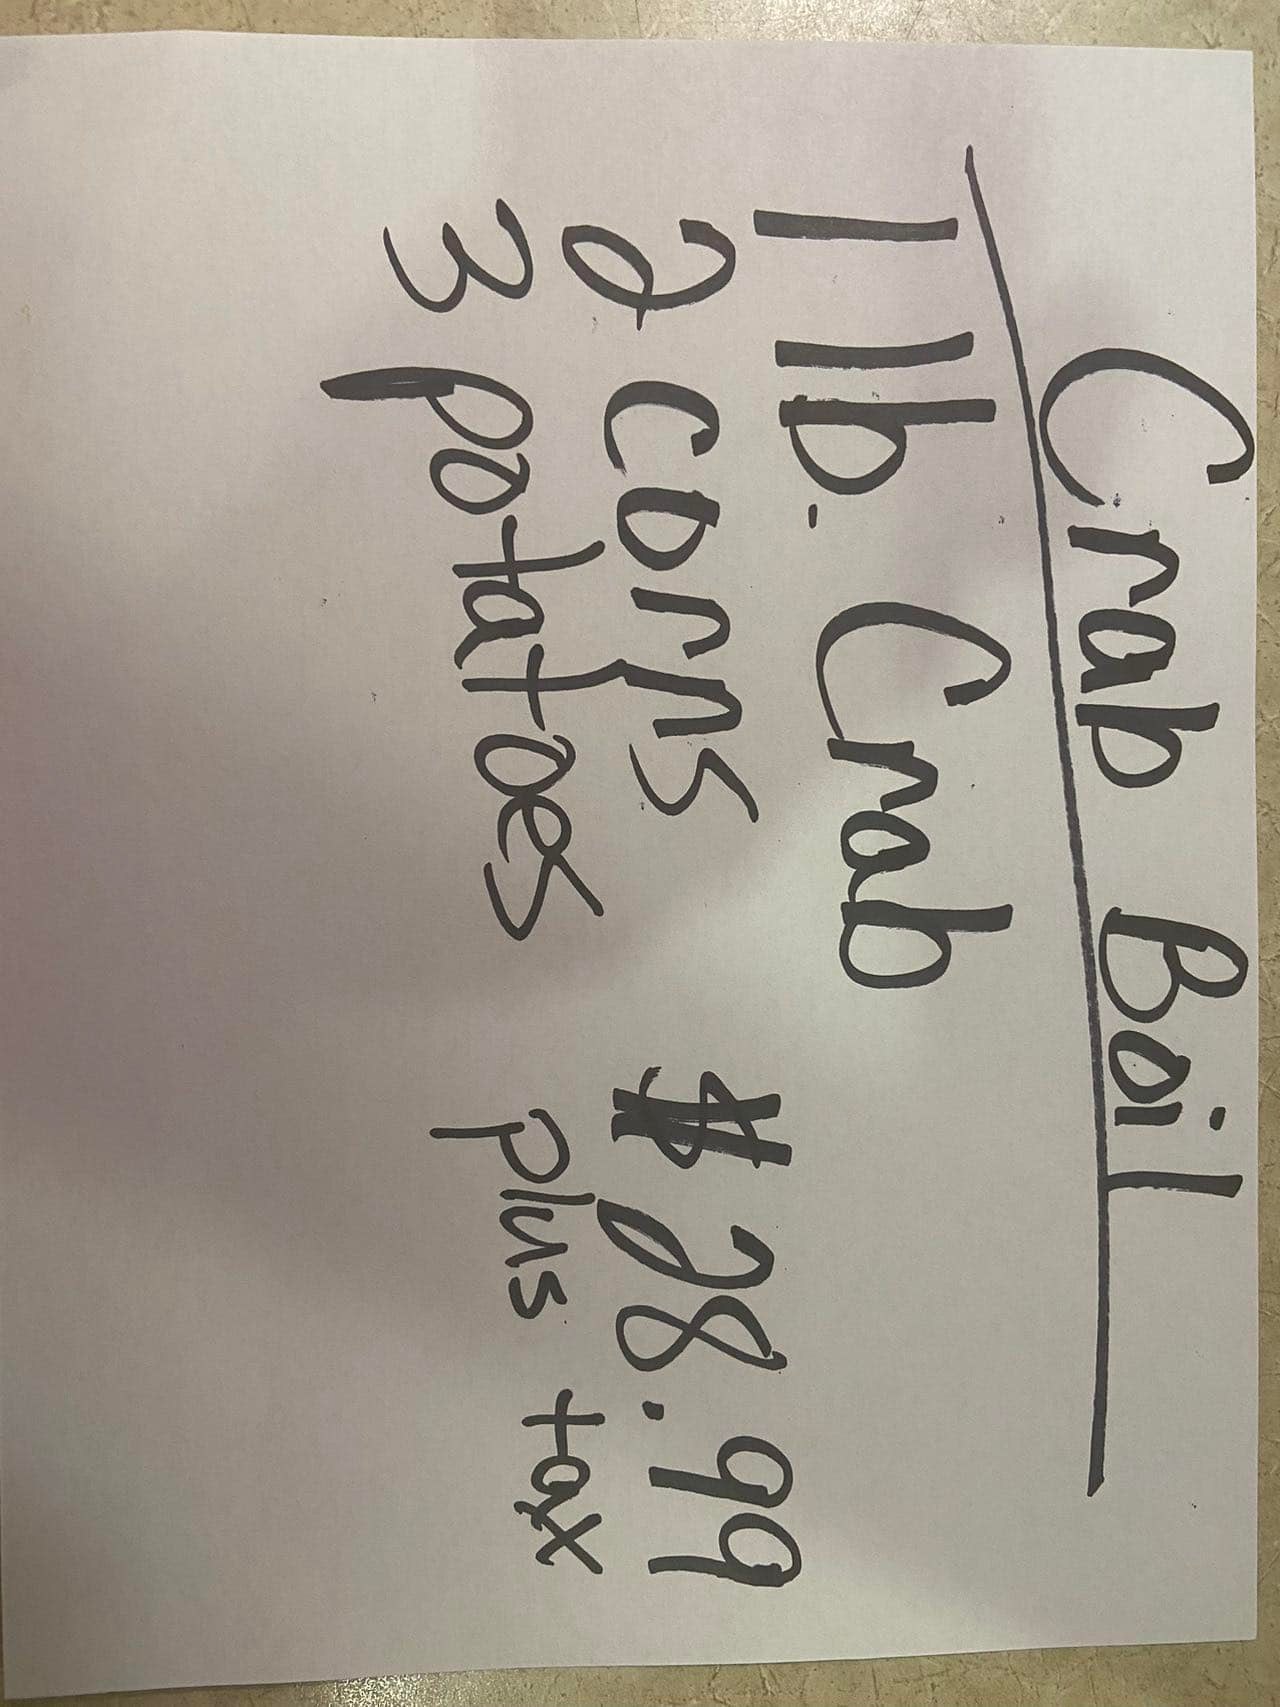 Crab Boil
1 lb. Crab
2 corns
3 potatoes
$28.99
plus tax